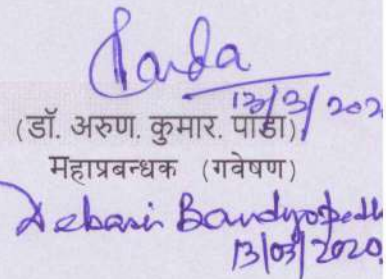 Panda
13/3/202
(डॉ. अरुण. कुमार. पांडा)
महाप्रबन्धक (गवेषण)
Debasis Bandyopadh
13/03/2020